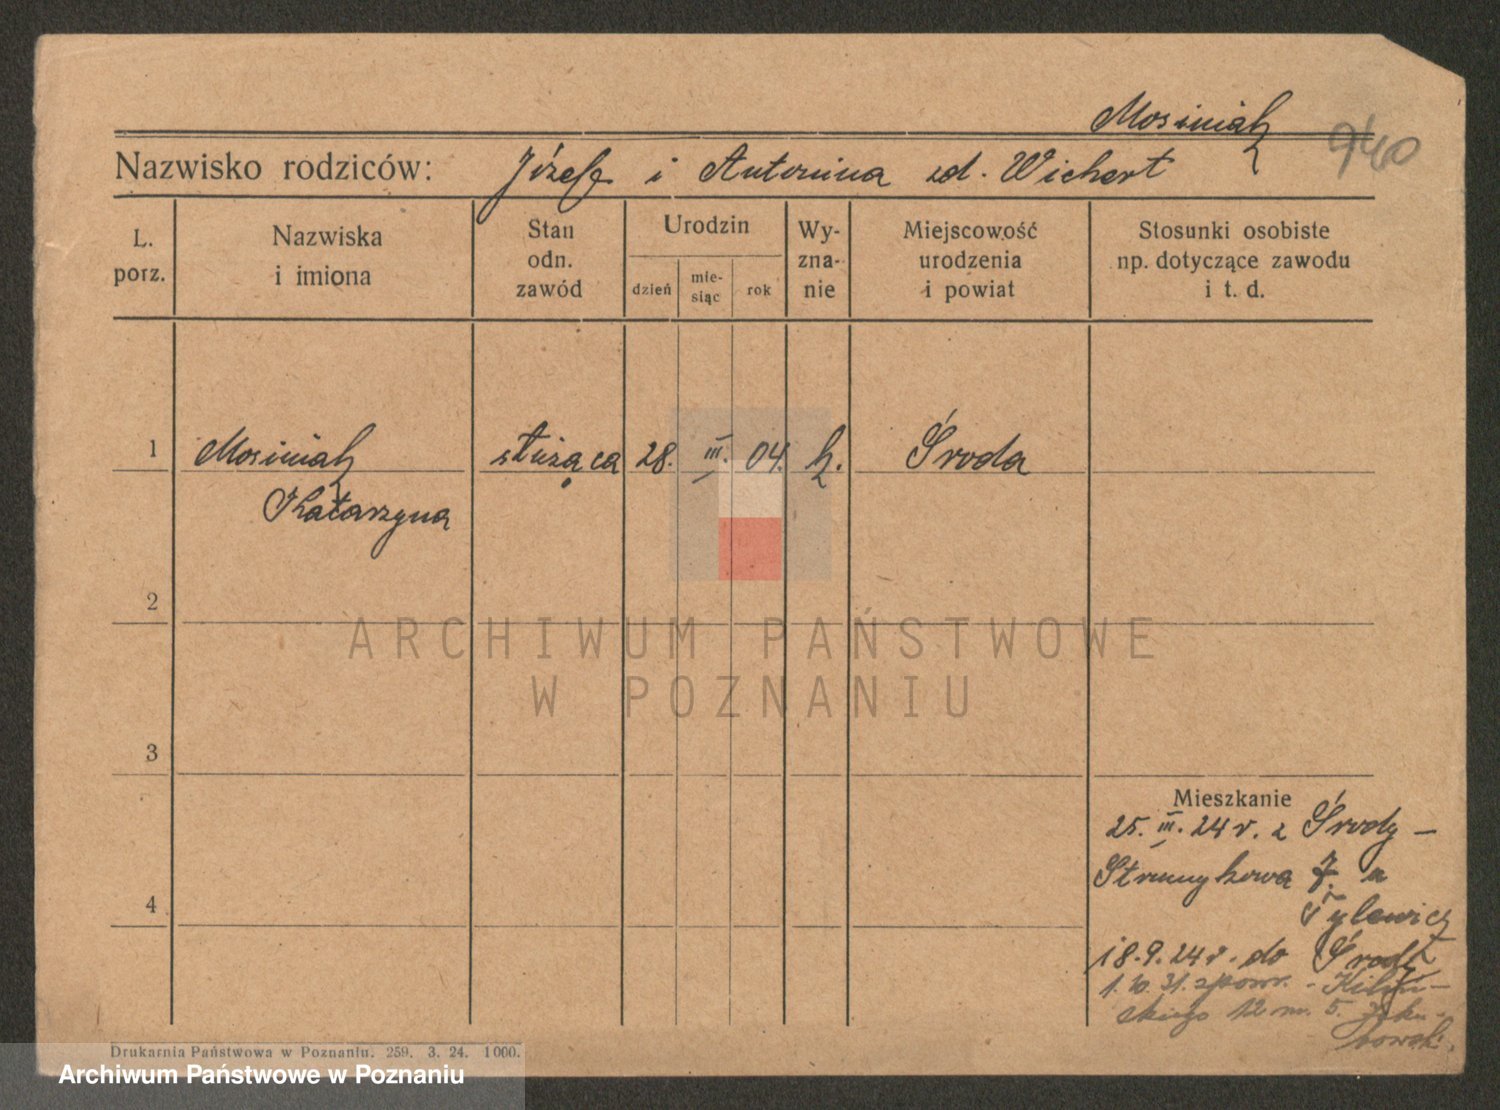 Mosiniak
940
Nazwisko rodziców: Józef i Antonina zd. Wichert
L. porz.
Nazwiska i imiona
Stan odn. zawód
Urodzin
dzień
mie-siąc
rok
Wy-zna-nie
Miejscowość urodzenia i powiat
Stosunki osobiste np. dotyczące zawodu i t. d.
1 Mosiniak służąca 28. III. 04. k. Środa
Katarzyna
2
ARCHIWUM PAŃSTWOWE
W POZNANIU
3
Mieszkanie
25. III. 24 r. z Środy –
Strumykowa 7. u
4
Tylewicz
18.9.24 r. do Środy
1. 10. 31. z pow. - Kiliń-
skiego 12 m. 5.
Drukarnia Państwowa w Poznaniu. 259. 3. 24. 1000.
Archiwum Państwowe w Poznaniu